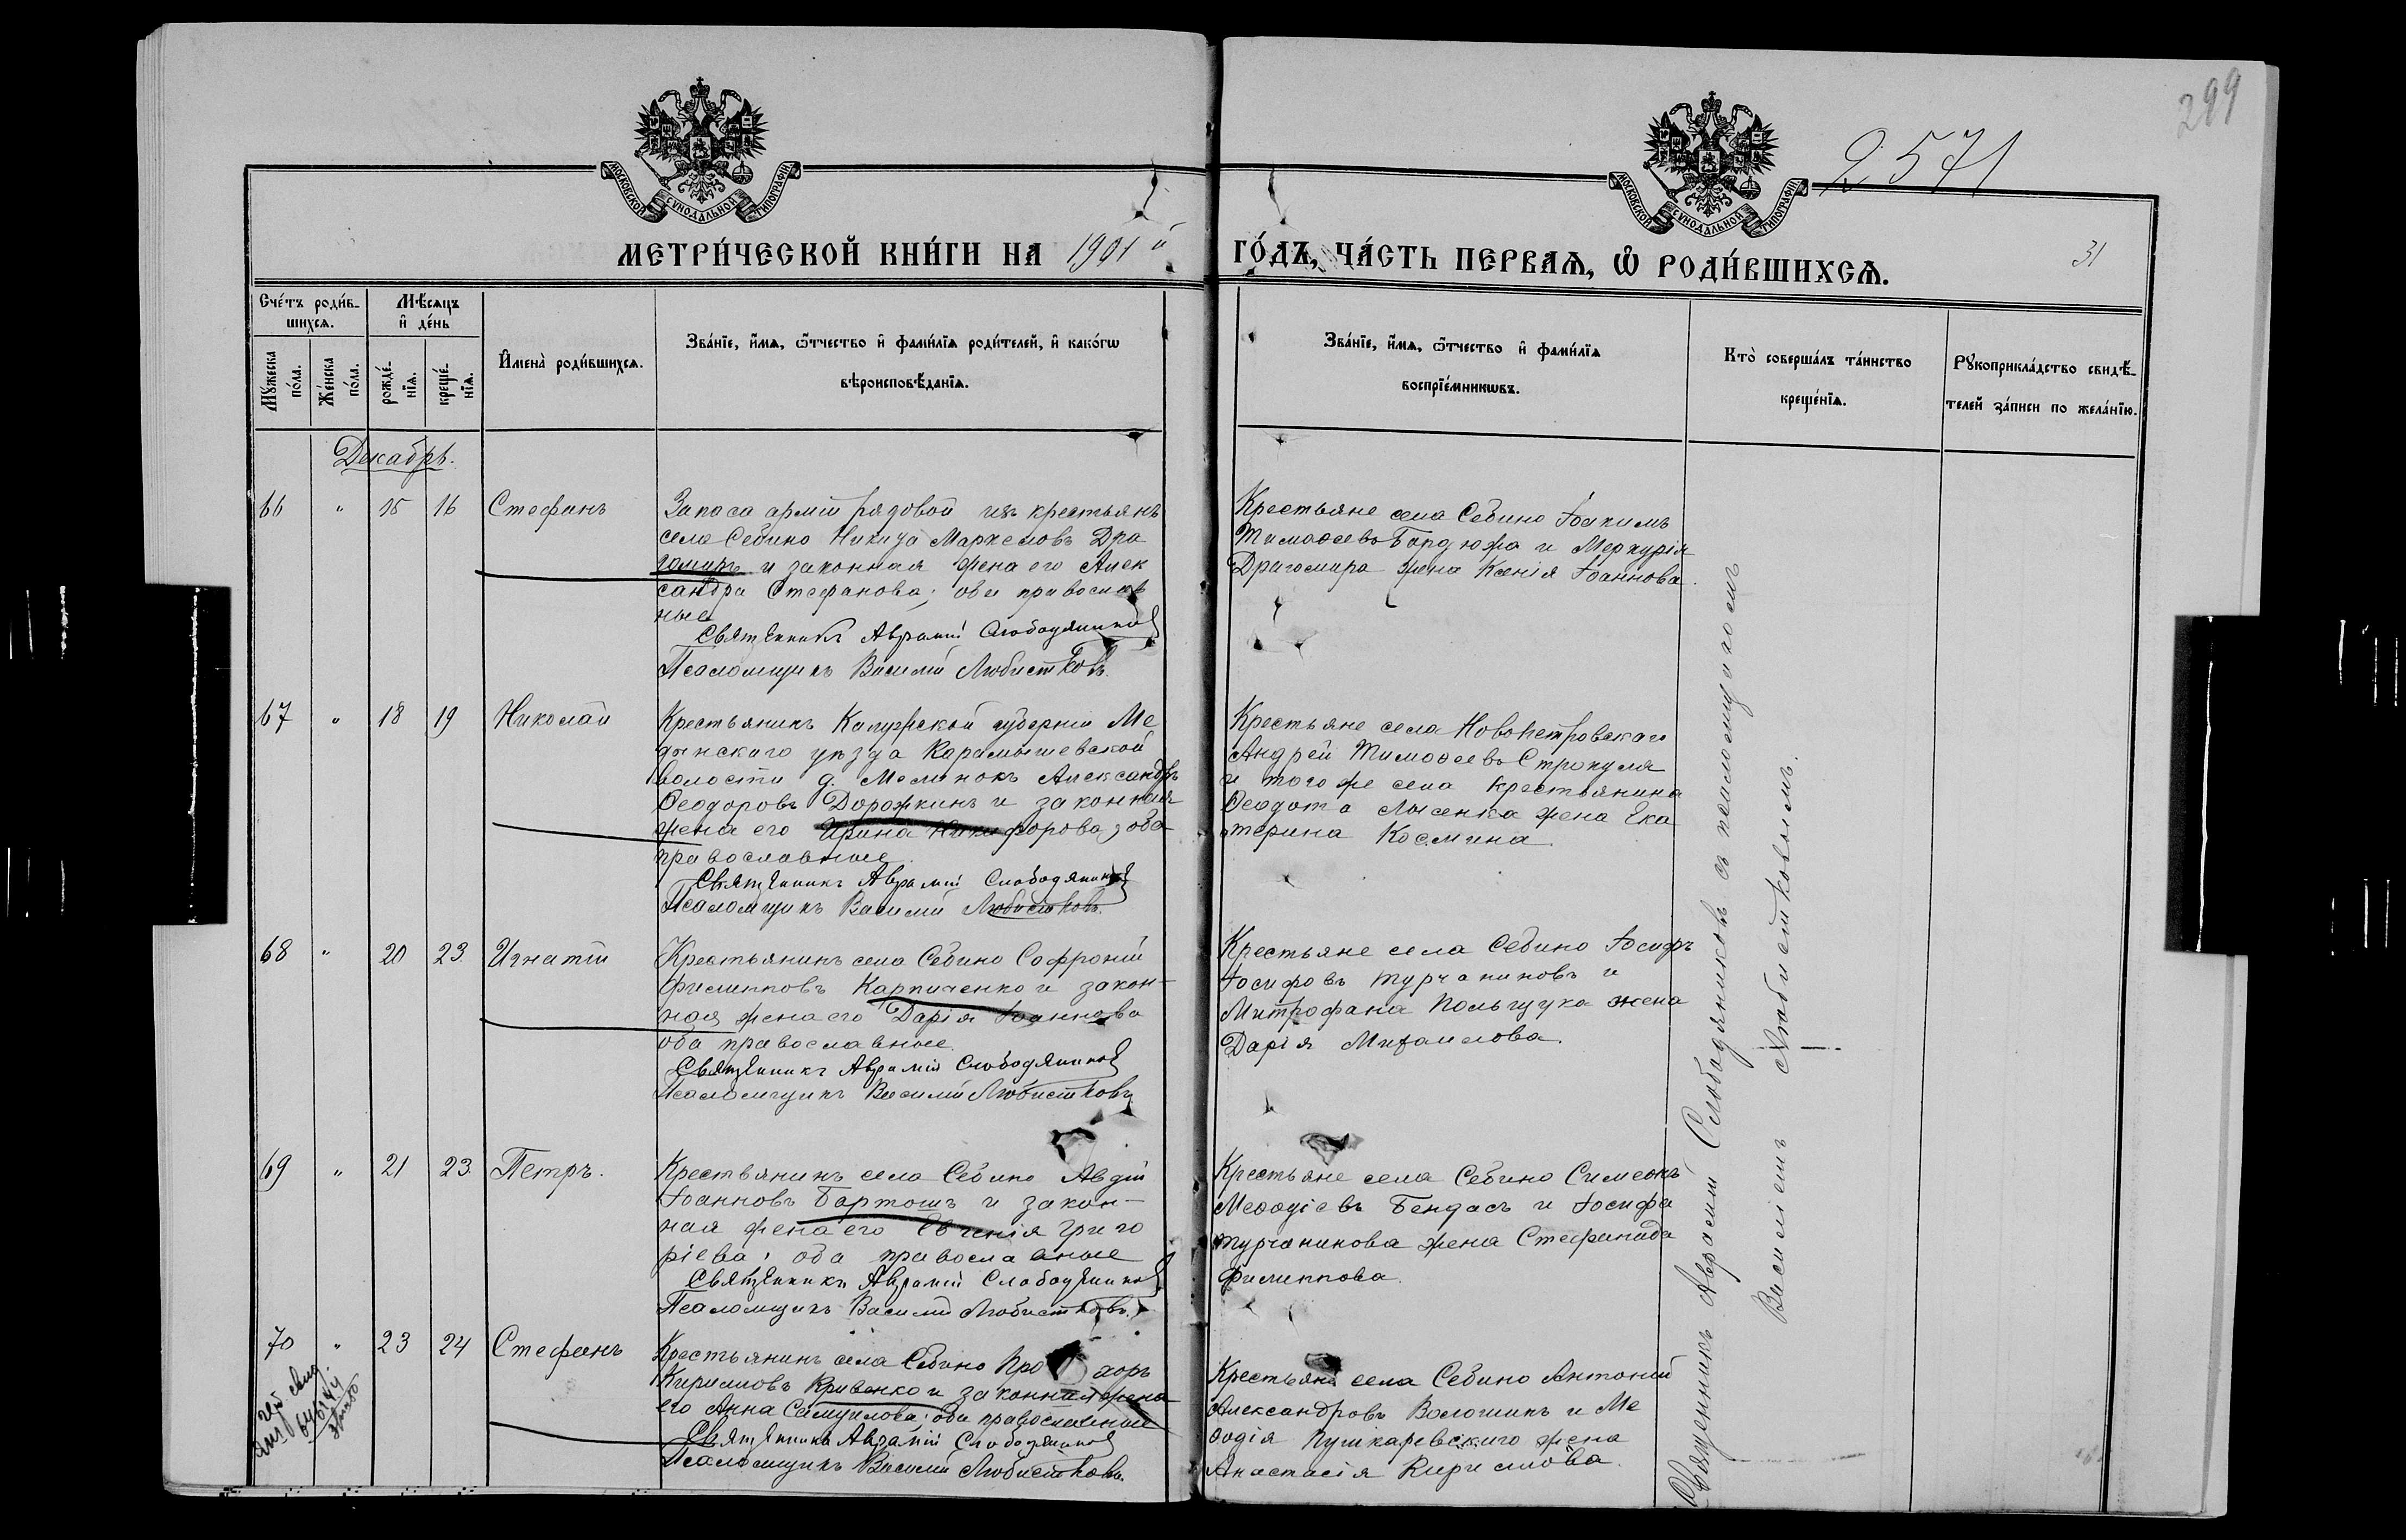 299
2571
МОСКОВСКОЙ СѴНОДАЛЬНОЙ ТИПОГРАФІИ
МОСКОВСКОЙ СѴНОДАЛЬНОЙ ТИПОГРАФІИ
МЕТРИ́ЧЕСКОЙ КНИ́ГИ НА 1901 й
ГО́ДЪ, ЧА́СТЬ ПЕРВАѦ, Ѡ҆ РОДИ́ВШИХСѦ.
31
Сче́тъ роди́в-
шихсѧ.
Мꙋжеска
по́ла.
Же́нска
по́ла.
Мѣ́сѧцъ
и҆ де́нь
рожде́-
нїѧ.
креще́-
нїѧ.
И҆мена̀ роди́вшихсѧ.
Зва́нїе, и҆́мѧ, ѻ҆́тчество и҆ фами́лїѧ роди́телей, и҆ како́гѡ
вѣроисповѣ́данїѧ.
Зва́нїе, и҆́мѧ, ѻ҆́тчество и҆ фами́лїѧ
воспрїе́мникѡвъ.
Кто̀ соверша́лъ та́инство
креще́нїѧ.
Рꙋкоприкла́дство свидѣ́-
телей за́писи по жела́нїю.
Декабрь.
66 " 15 16 Стефанъ
Запаса арміи рядовой изъ крестьянъ
села Себино Никита Маркеловъ Дра
гомиръ и законная жена его Алек
сандра Стефанова; оба православ
ные
Священникъ Аврамій Слободяников
Псаломщикъ Василій Любистковъ.
Крестьяне села Себино Іоакимъ
Тимоѳеевъ Бардюжа и Меркурія
Драгомира жена Ксенія Іоаннова.
67 " 18 19 Николай
Крестьянинъ Калужской губерніи Ме
дынскаго уѣзда Карамышевской
волости д. Александръ
Ѳеодоровъ Дорожкинъ и законная
жена его Ирина Никифорова, оба
православные.
Священникъ Аврамій Слободяников
Псаломщикъ Василій Любистковъ.
Крестьяне села Новопетровскаго
Андрей Тимоѳеевъ Строкуля
и того же села крестьянина
Ѳеодота Лысенка жена Ека
терина Космина.
68 " 20 23 Игнатій
Крестьянинъ села Себино Софроній
Филипповъ Карпиченко и закон-
ная жена его Дарія Іоаннова
оба православные.
Священникъ Аврамій Слободяников
Псаломщикъ Василій Любистковъ
Крестьяне села Себино Іосифъ
Іосифовъ Турчаниновъ и
Митрофана Польщука жена
Дарія Михаилова.
69 " 21 23 Петръ.
Крестьянинъ села Себино Авдій
Іоанновъ Бартошъ и закон-
ная жена его Евгенія Григо
ріева; оба православные
Священникъ Аврамій Слободяников
Псаломщикъ Василій Любистковъ.
Крестьяне села Себино Симеонъ
Меѳодіевъ Бендасъ и Іосифа
Турчанинова жена Стефанида
Филиппова.
70 " 23 24 Стефанъ
Крестьянинъ села Себино Прохоръ
Кирилловъ Кривенко и законная жена
его Анна Самуилова; оба православные
Священникъ Аврамій Слободяников
Псаломщикъ Василій Любистковъ.
Крестьяне села Себино Антоній
Александровъ Волошинъ и Ме
ѳодія Пушкаревскаго жена
Анастасія Кириллова.
Священникъ Аврамій Слободяниковъ съ псаломщикомъ
Василіемъ Любистковымъ.